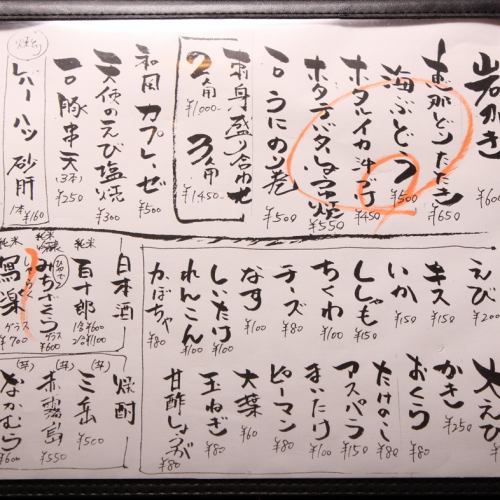 岩がき
¥600
恵那どりたたき
¥650
海ぶどう
¥500
ホタルイカ沖づけ
¥450
ホタテバターしょうゆ焼
¥550
一口うにのり巻
¥500
刺身盛り合わせ
2人前
¥1000-
3人前
¥1450-
和風カプレーゼ
¥500
天使のえび塩焼
¥300
一口豚串天(3本)
¥250
焼とり
レバー ハツ 砂肝
1本 ¥160
大えび
えび
¥200
キス
¥150
いか
¥150
ししゃも
¥150
ちくわ
¥100
チーズ
¥80
なす
¥100
しいたけ
¥100
れんこん
¥100
かぼちゃ
¥80
かき
¥250
おくら
¥80
たけのこ
¥80
アスパラ
¥150
まいたけ
¥100
ピーマン
¥80
大葉
¥60
玉ねぎ
¥80
甘酢しょうが
¥80
日本酒
純米
百十郎
1合 ¥600
2合 ¥1100
純米吟醸
みちざくら
グラス
¥600
純米
しゃらく
寫楽
グラス
¥700
焼酎
(芋)
三岳
¥500
(芋)
赤霧島
¥550
(芋)
なかむら
¥600